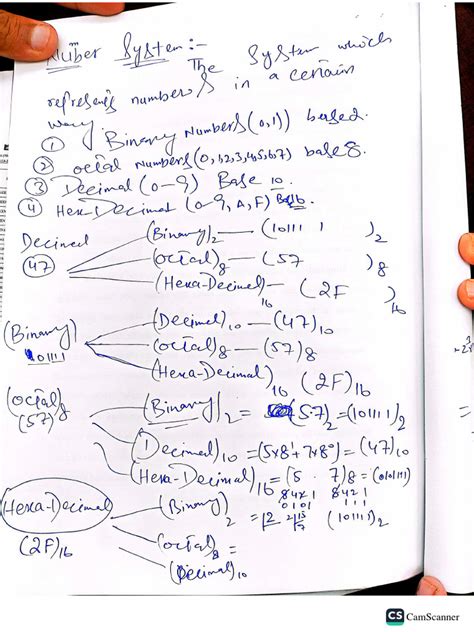 Number System :-
The System which
represents numbers in a certain
way.
① Binary Numbers (0,1) based.
② octal Numbers (0,1,2,3,4,5,6,7) base 8.
③ Decimal (0-9) Base 10.
④ Hexa-Decimal (0-9, A, F) B 16.
Decimal
(Binary)2 — (10111 1 )2
47
(octal)8 — (57 )8
(Hexa-Decimal)16 — (2F )16
(Decimal)10 — (47)10
(Binary)
101111
(octal)8 — (57)8
(Hexa-Decimal)16 (2F)16
(octal)8
(57)8
(Binary)2 = (57)2 = (101111)2
Decimal)10 = (5x8¹+7x8⁰) = (47)10
(Hexa-Decimal)16 = (5 . 7)8 = (010111)
8421 8421
0101 111
(Hexa-Decimal)
(2F)16
(Binary)2 = 2 15 (10111)2
(octal)8 =
(Decimal)10
CS CamScanner